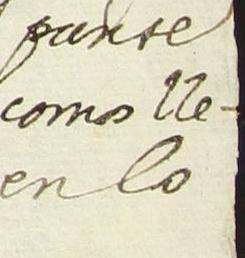 punse
como lle-
en lo